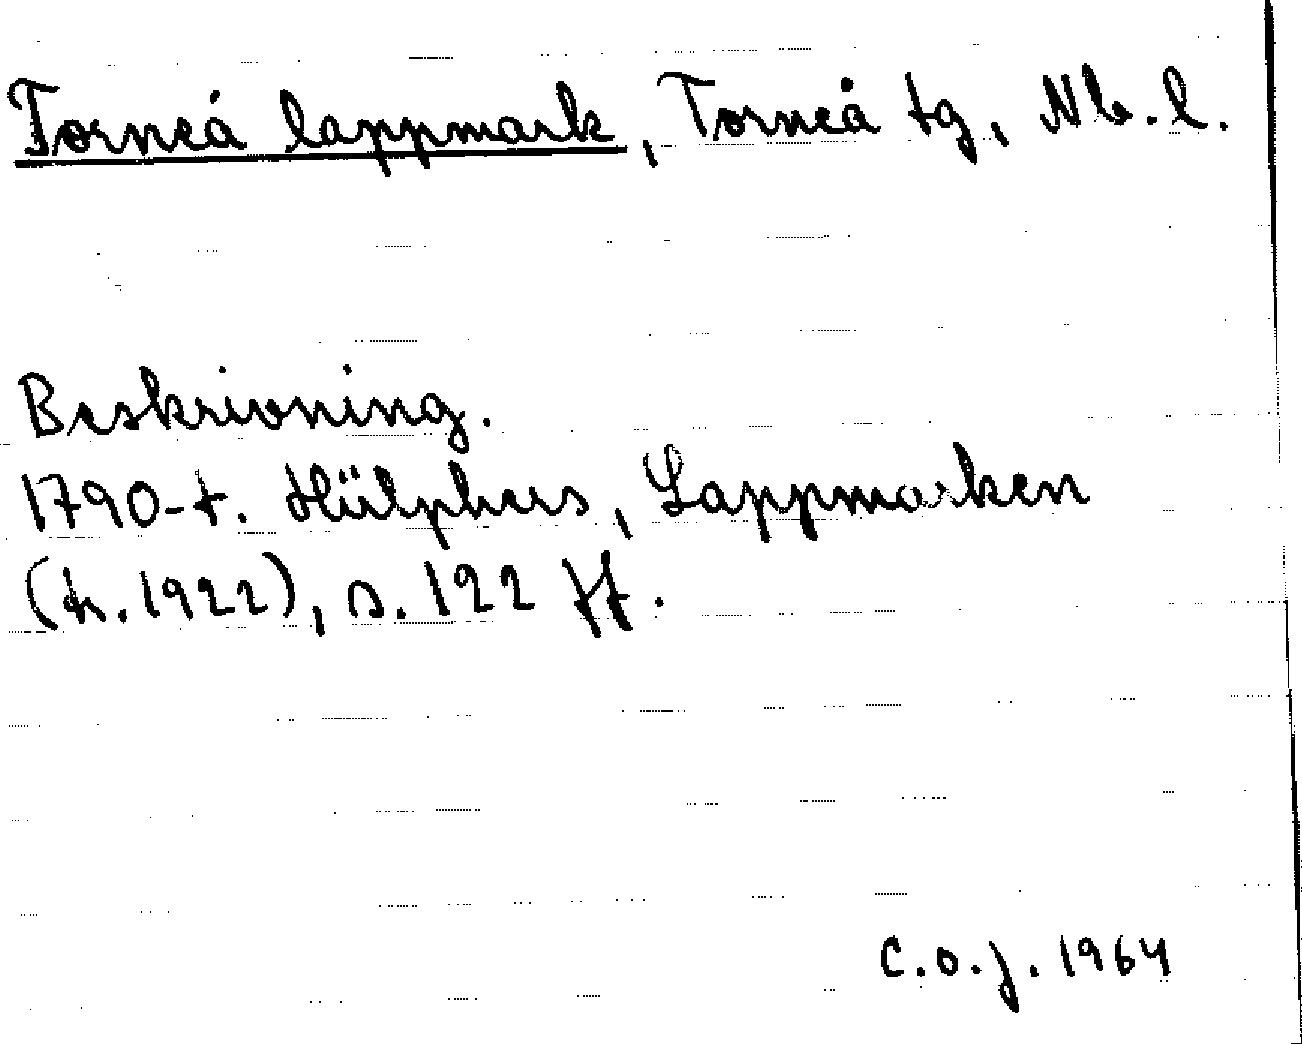 Torneå lappmark, Torneå tg, Nb.l.
Beskrivning.
1790-t. Hülphers, Lappmarken
(tr. 1922), s. 122 ff.
C.O.J. 1964